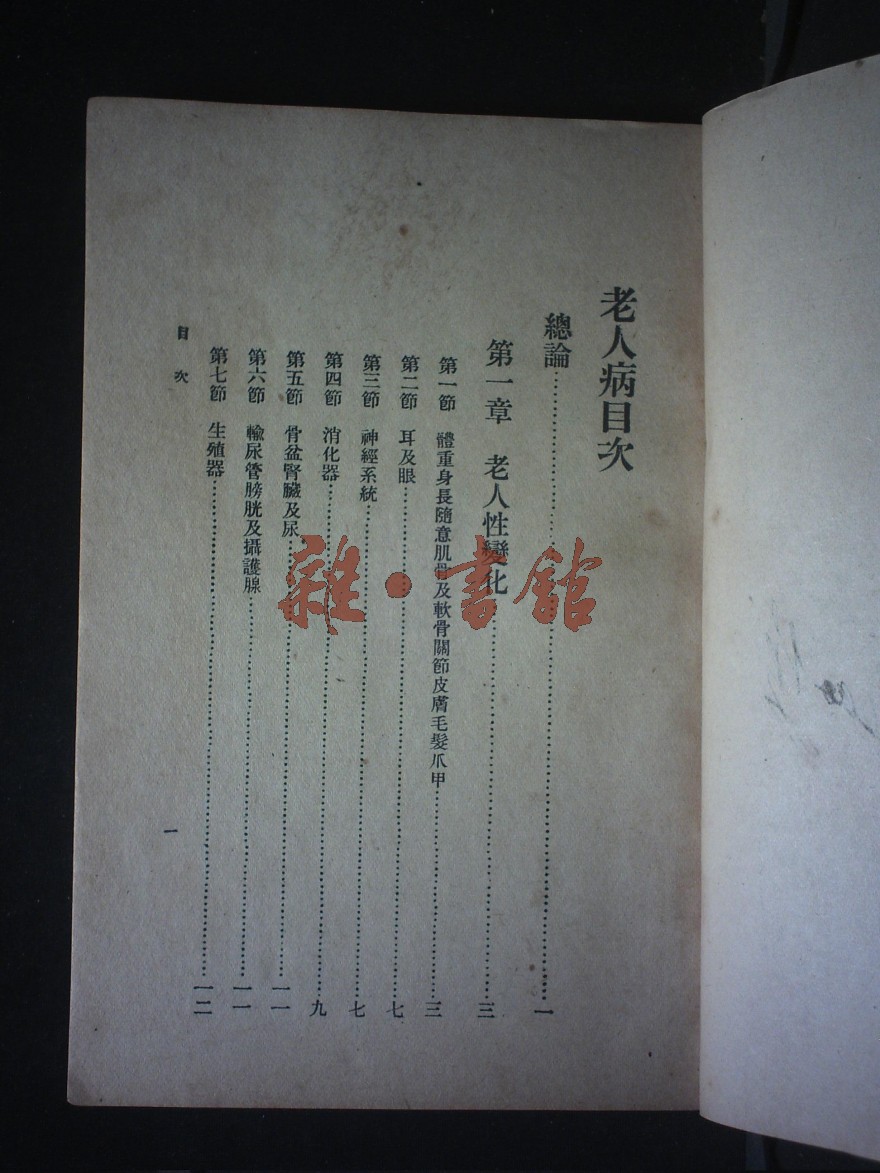 老人病目次
總論……………………一
第一章　老人性變化……………………三
第一節　體重身長隨意肌骨及軟骨關節皮膚毛髮爪甲……………………三
第二節　耳及眼……………………七
第三節　神經系統……………………七
第四節　消化器……………………九
第五節　骨盆腎臟及尿……………………一一
第六節　輸尿管膀胱及攝護腺……………………一一
第七節　生殖器……………………一二
目次
一
雜·書館